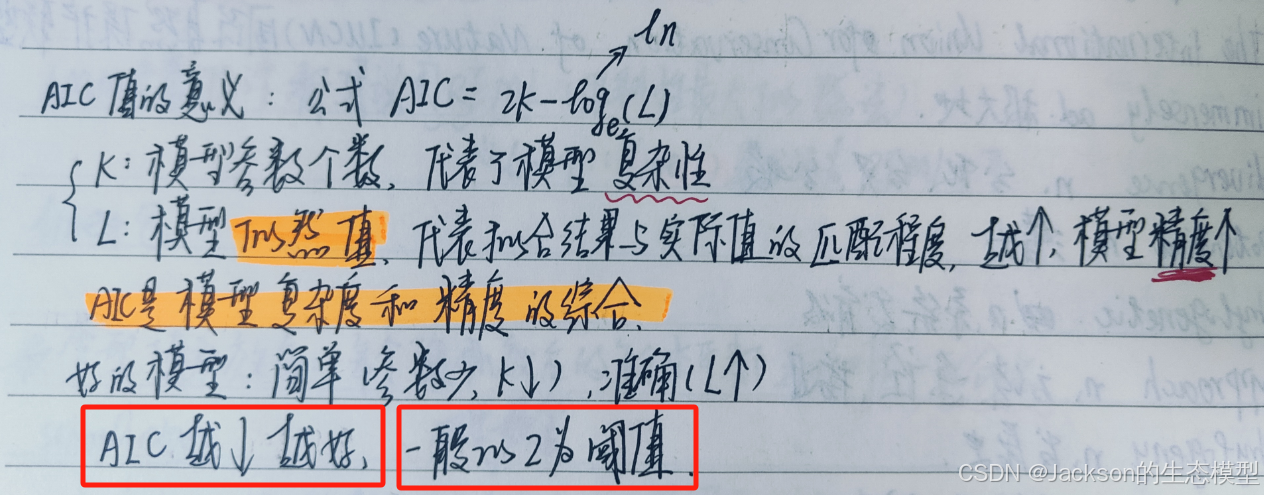 ln
AIC值的意义：公式 AIC = 2k - logₑ(L)
K：模型参数个数，代表了模型复杂性
L：模型似然值，代表拟合结果与实际值的匹配程度，越↑，模型精度↑
AIC是模型复杂度和精度的综合.
好的模型：简单（参数少，K↓），准确（L↑）
AIC越↓越好，一般以2为阈值.
CSDN @Jackson的生态模型